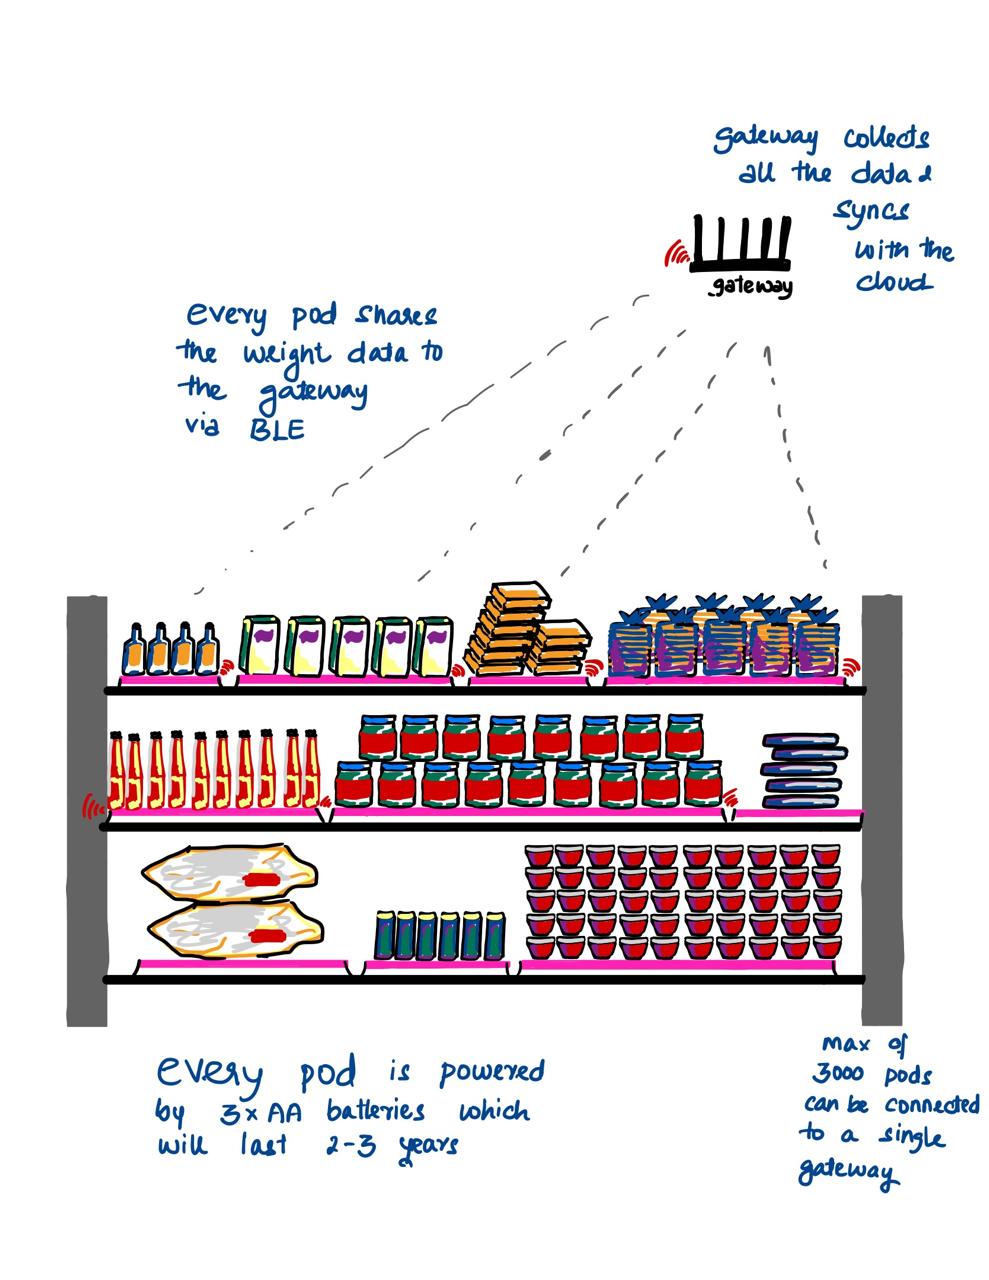 gateway collects
all the data &
syncs
with the
cloud
gateway
every pod shares
the weight data to
the gateway
via BLE
every pod is powered
by 3xAA batteries which
will last 2-3 years
max of
3000 pods
can be connected
to a single
gateway